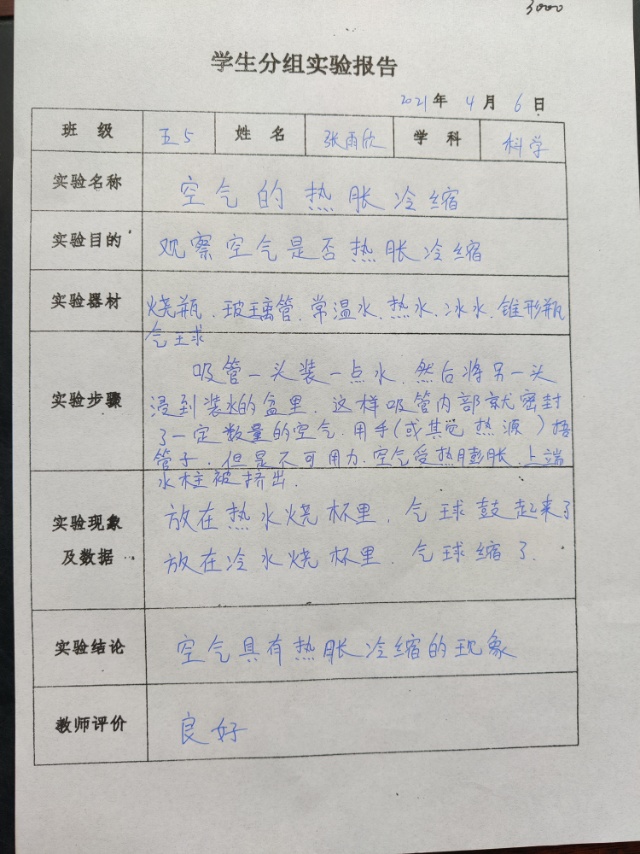 3000
学生分组实验报告
2021年 4月 6日
班 级 五5 姓 名 张雨欣 学 科 科学
实验名称 空气的热胀冷缩
实验目的 观察空气是否热胀冷缩
实验器材 烧瓶、玻璃管、常温水、热水、冰水、锥形瓶
气球
吸管一头装一点水,然后将另一头
实验步骤 浸到装水的盆里,这样吸管内部就密封
了一定数量的空气,用手(或其它热源)捂
管子,但是不可用力,空气受热膨胀,上端
水柱被挤出.
实验现象 放在热水烧杯里,气球鼓起来了
及数据 放在冷水烧杯里,气球缩了.
实验结论 空气具有热胀冷缩的现象
教师评价 良好